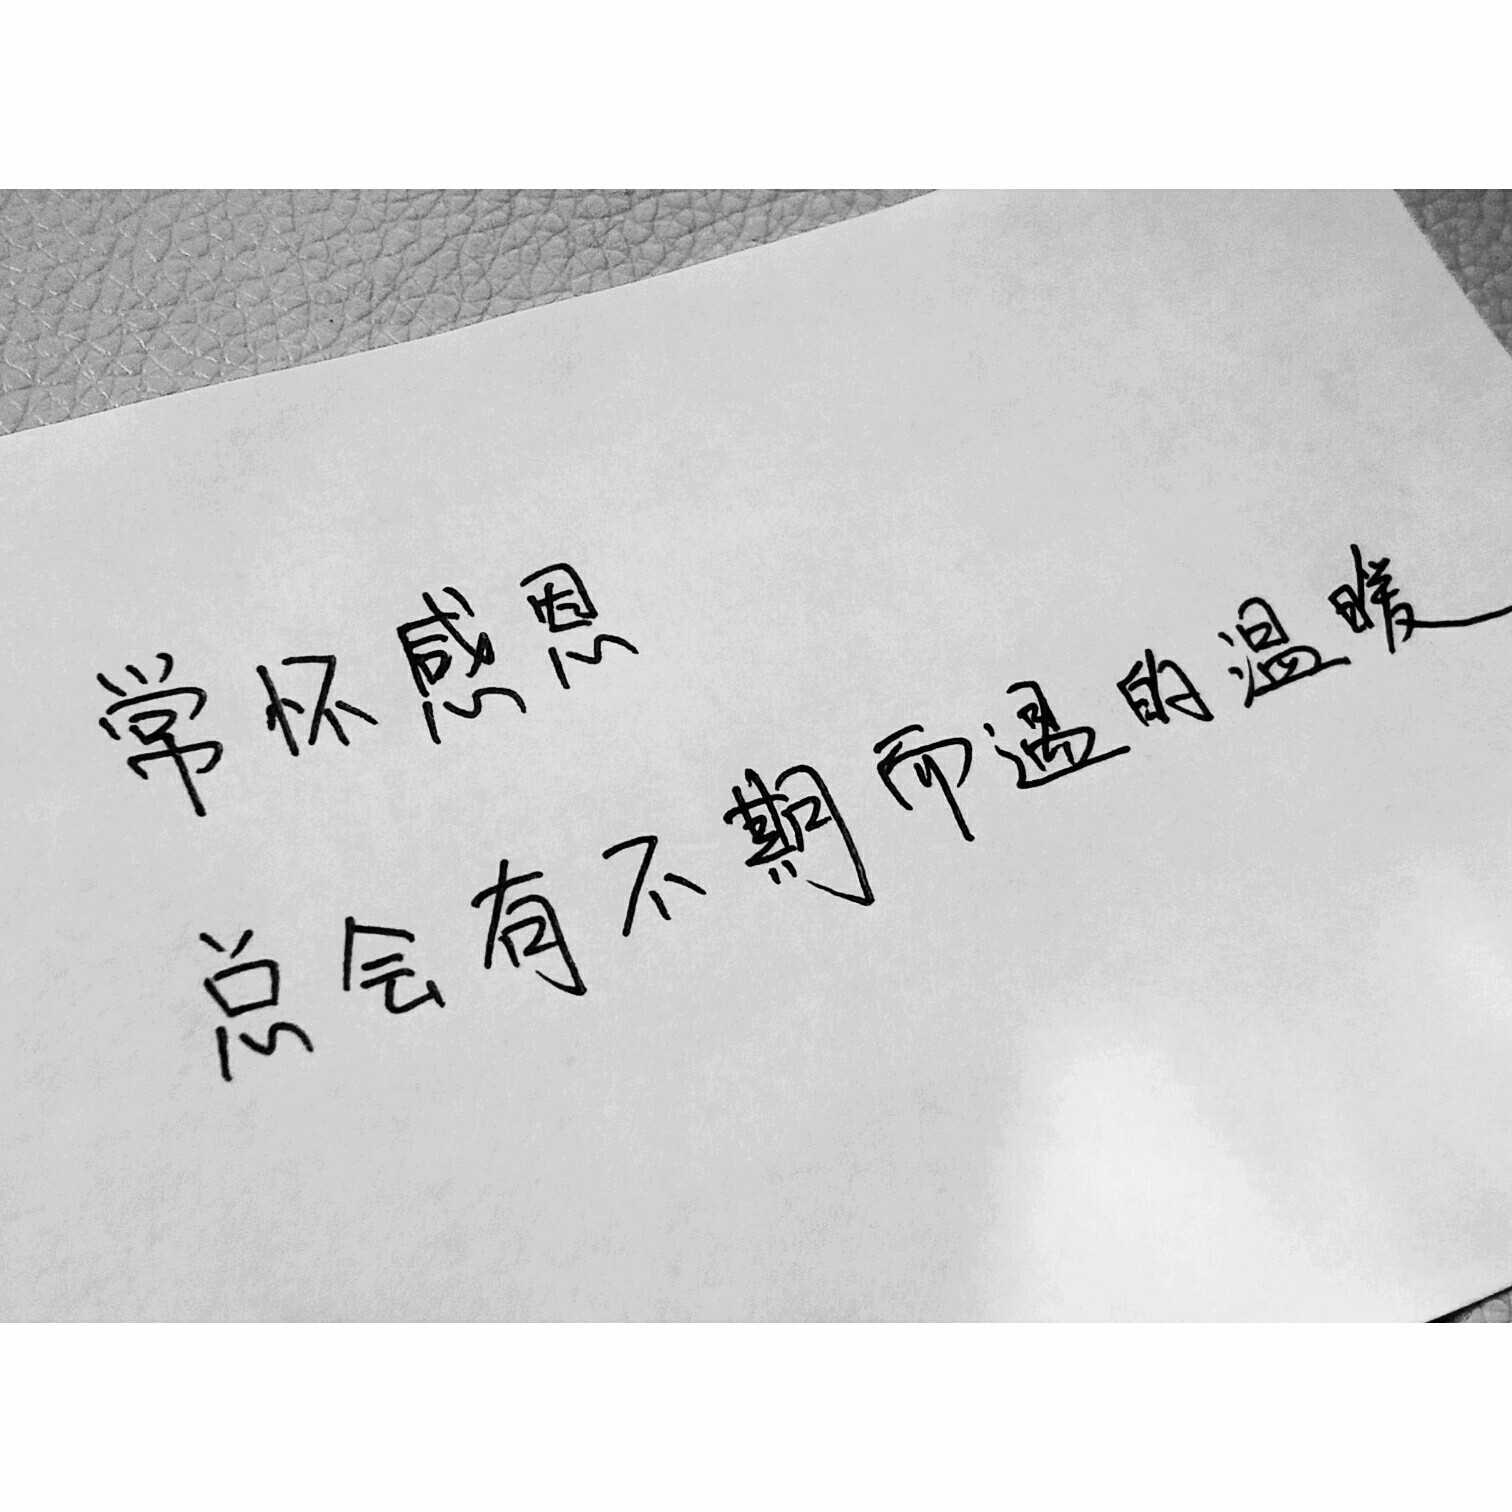 常怀感恩
总会有不期而遇的温暖